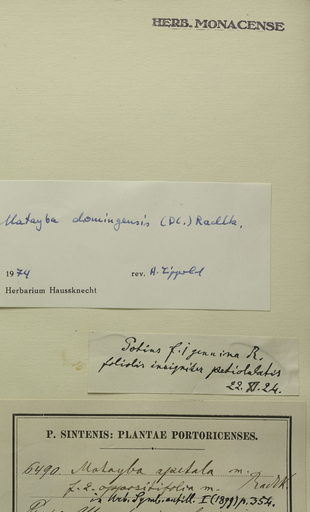 HERB. MONACENSE
Matayba domingensis (DC.) Radlk.
1974 rev. H. Lippold
Herbarium Haussknecht
Potius f. 1 genuina R.
foliolis insigniter petiolulatis
22. XI. 24.
P. SINTENIS: PLANTAE PORTORICENSES.
6490. Matayba apetala m. Radlk
f. 2. oppositifolia m.
in Urb. Symb. antill. I (1899) p. 354.